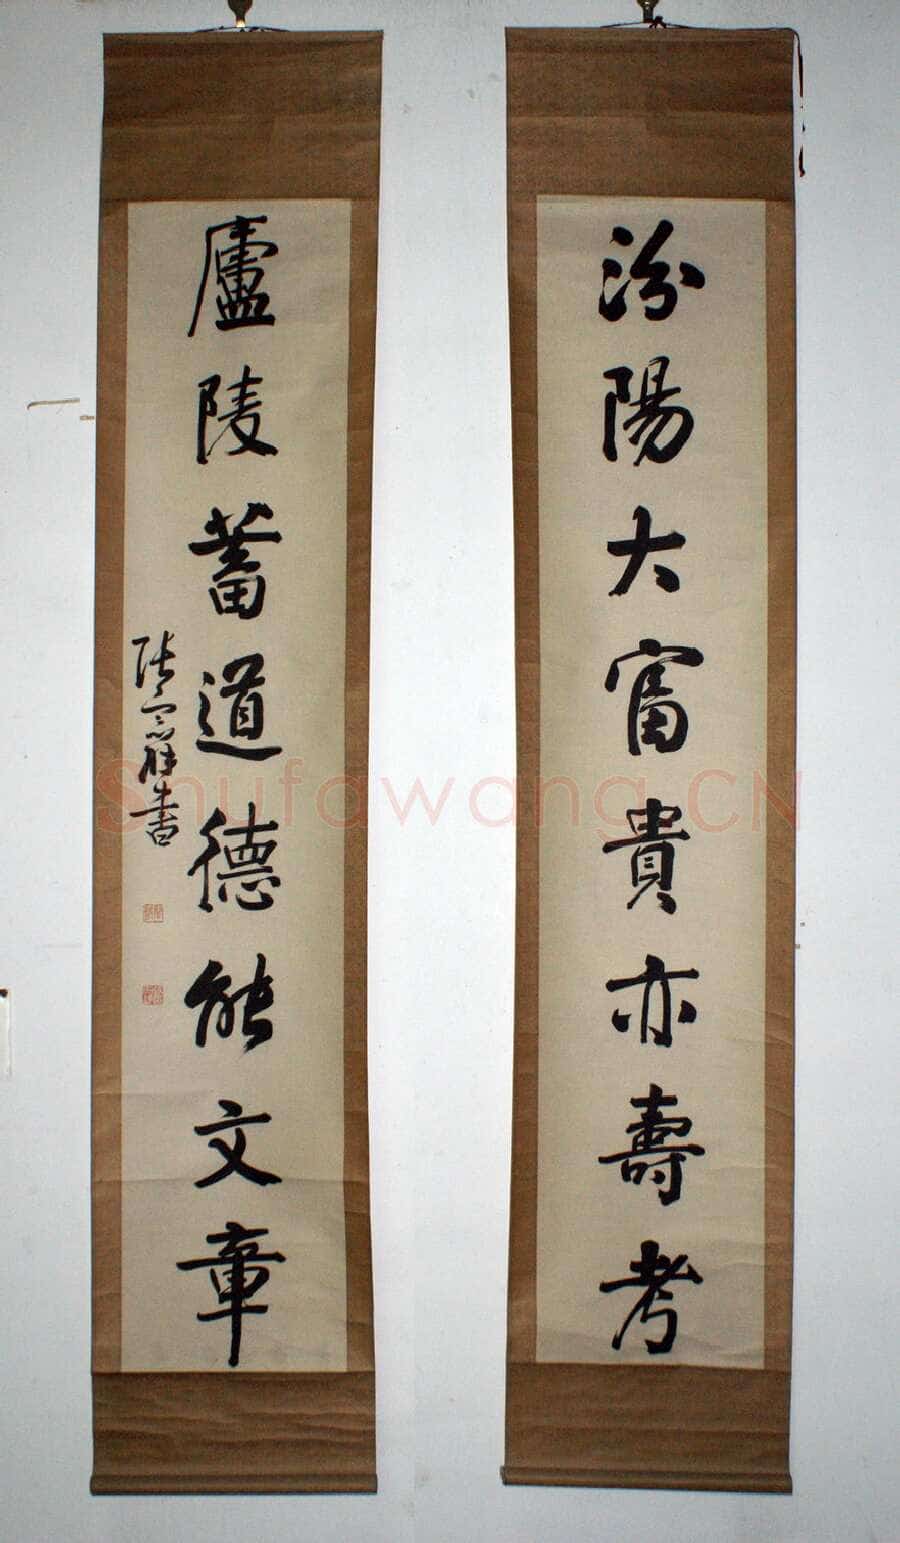 汾陽大富貴亦壽考
廬陵蓄道德能文章
張宗祥書
Shufawang.CN